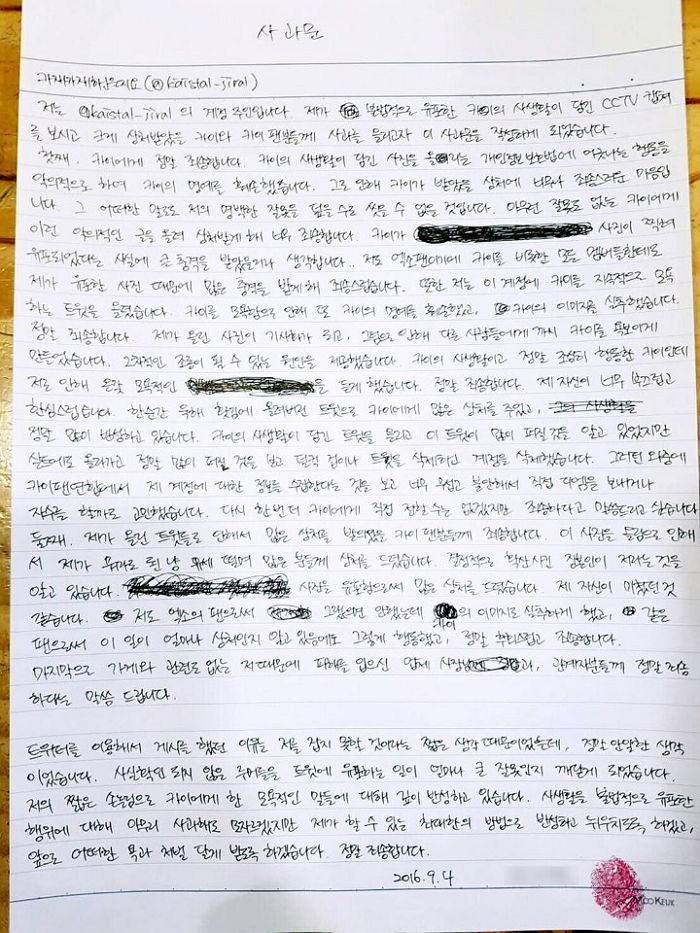 사과문
카재가재하는지요 (@kaistal-jiral)
저는 @kaistal-jiral 의 계정 주인입니다. 제가 불법적으로 유포한 카이의 사생활이 담긴 CCTV 캡쳐
를 보시고 크게 상처받았을 카이와 카이 팬분들께 사과를 드리고자 이 사과문을 작성하게 되었습니다.
첫째, 카이에게 정말 죄송합니다. 카이의 사생활이 담긴 사진을 올리는 개인정보보호법에 어긋나는 행동을
악의적으로 하여 카이의 명예를 훼손했습니다. 그로 인해 카이가 받았을 상처에 너무나 죄송스러운 마음입
니다. 그 어떠한 말로도 저의 명백한 잘못을 덮을 수도 씻을 수 없을 것입니다. 아무런 잘못도 없는 카이에게
이런 악의적인 글을 올려 상처받게 해 너무 죄송합니다. 카이가 사진이 찍혀
유포되었다는 사실에 큰 충격을 받았을거라 생각합니다. 저도 엑소팬이기에 카이를 비롯한 모든 멤버들한테도
제가 유포한 사진 때문에 많은 충격을 받게해 죄송스럽니다. 또한 저는 이 계정에 카이를 지속적으로 모욕
하는 트윗을 올렸습니다. 카이를 모욕함으로 인해 또 카이의 명예를 훼손했고, 카이의 이미지를 실추했습니다.
정말 죄송합니다. 제가 올린 사진이 기사화가 되고, 그럼으로 인해 다른 사람들에게까지 카이를 욕보이게
만들었습니다. 2차적인 조롱이 될 수 있는 원인을 제공했습니다. 카이의 사생활이고 정말 조심히 행동한 카이인데
저로 인해 온갖 모욕적인 을 듣게 했습니다. 정말 죄송합니다. 제 자신이 너무 부끄럽고
한심스럽습니다. 한순간 욱해 홧김에 올려버린 트윗으로 카이에게 많은 상처를 주었고,
정말 많이 반성하고 있습니다. 카이의 사생활이 담긴 트윗을 올리고 이 트윗이 많이 퍼질 것을 알고 있었지만
실트에도 올라가고 정말 많이 퍼질 것을 보고 덜컥 겁이나 트윗을 삭제하고 계정을 삭제했습니다. 그러던 와중에
카이팬연합에서 제 계정에 대한 정보를 수집한다는 것을 보고 너무 무섭고 불안해서 직접 디엠을 보내거나
자수를 할까도 고민했습니다. 다시 한번 더 카이에게 직접 전할 수는 없겠지만 죄송하다고 말씀드리고 싶습니다.
둘째, 제가 올린 트윗들로 인해서 많은 상처를 받으셨을 카이 팬분들께 죄송합니다. 이 사진을 올림으로 인해
서 제가 많은 분들게 상처를 드렸습니다. 결정적으로 확산시킨 장본인이 저라는 것을
알고 있습니다. 사진을 유포함으로써 많은 상처를 드렸습니다. 제 자신이 미쳤던 것
같습니다. 저도 엑소의 팬으로써 그랬으면 안됐는데 카이의 이미지로 실추하게 했고, 같은
팬으로써 이 일이 얼마나 상처인지 알고 있음에도 그렇게 행동했고, 정말 죄스럽고 죄송합니다.
마지막으로 가게와 관련도 없는 저 때문에 피해를 입으신 업체 사장님과, 관계자분들께 정말 죄송
하다는 말씀 드립니다.
트위터를 이용해서 게시를 했던 이유는 저를 잡지 못할 것이라는 짧은 생각 때문이었는데, 정말 안일한 생각
이었습니다. 사실확인 되지 않은 루머들을 트윗에 유포하는 일이 얼마나 큰 잘못인지 깨닫게 되었습니다.
저의 짧은 손놀림으로 카이에게 한 모욕적인 말들에 대해 깊이 반성하고 있습니다. 사생활을 불법적으로 유포한
행위에 대해 아무리 사과해도 모자르겠지만 제가 할 수 있는 최대한의 방법으로 반성하고 뉘우치도록 하겠고,
앞으로 어떠한 욕과 처벌 달게 받도록 하겠습니다. 정말 죄송합니다.
2016.9.4
MOO KEUK